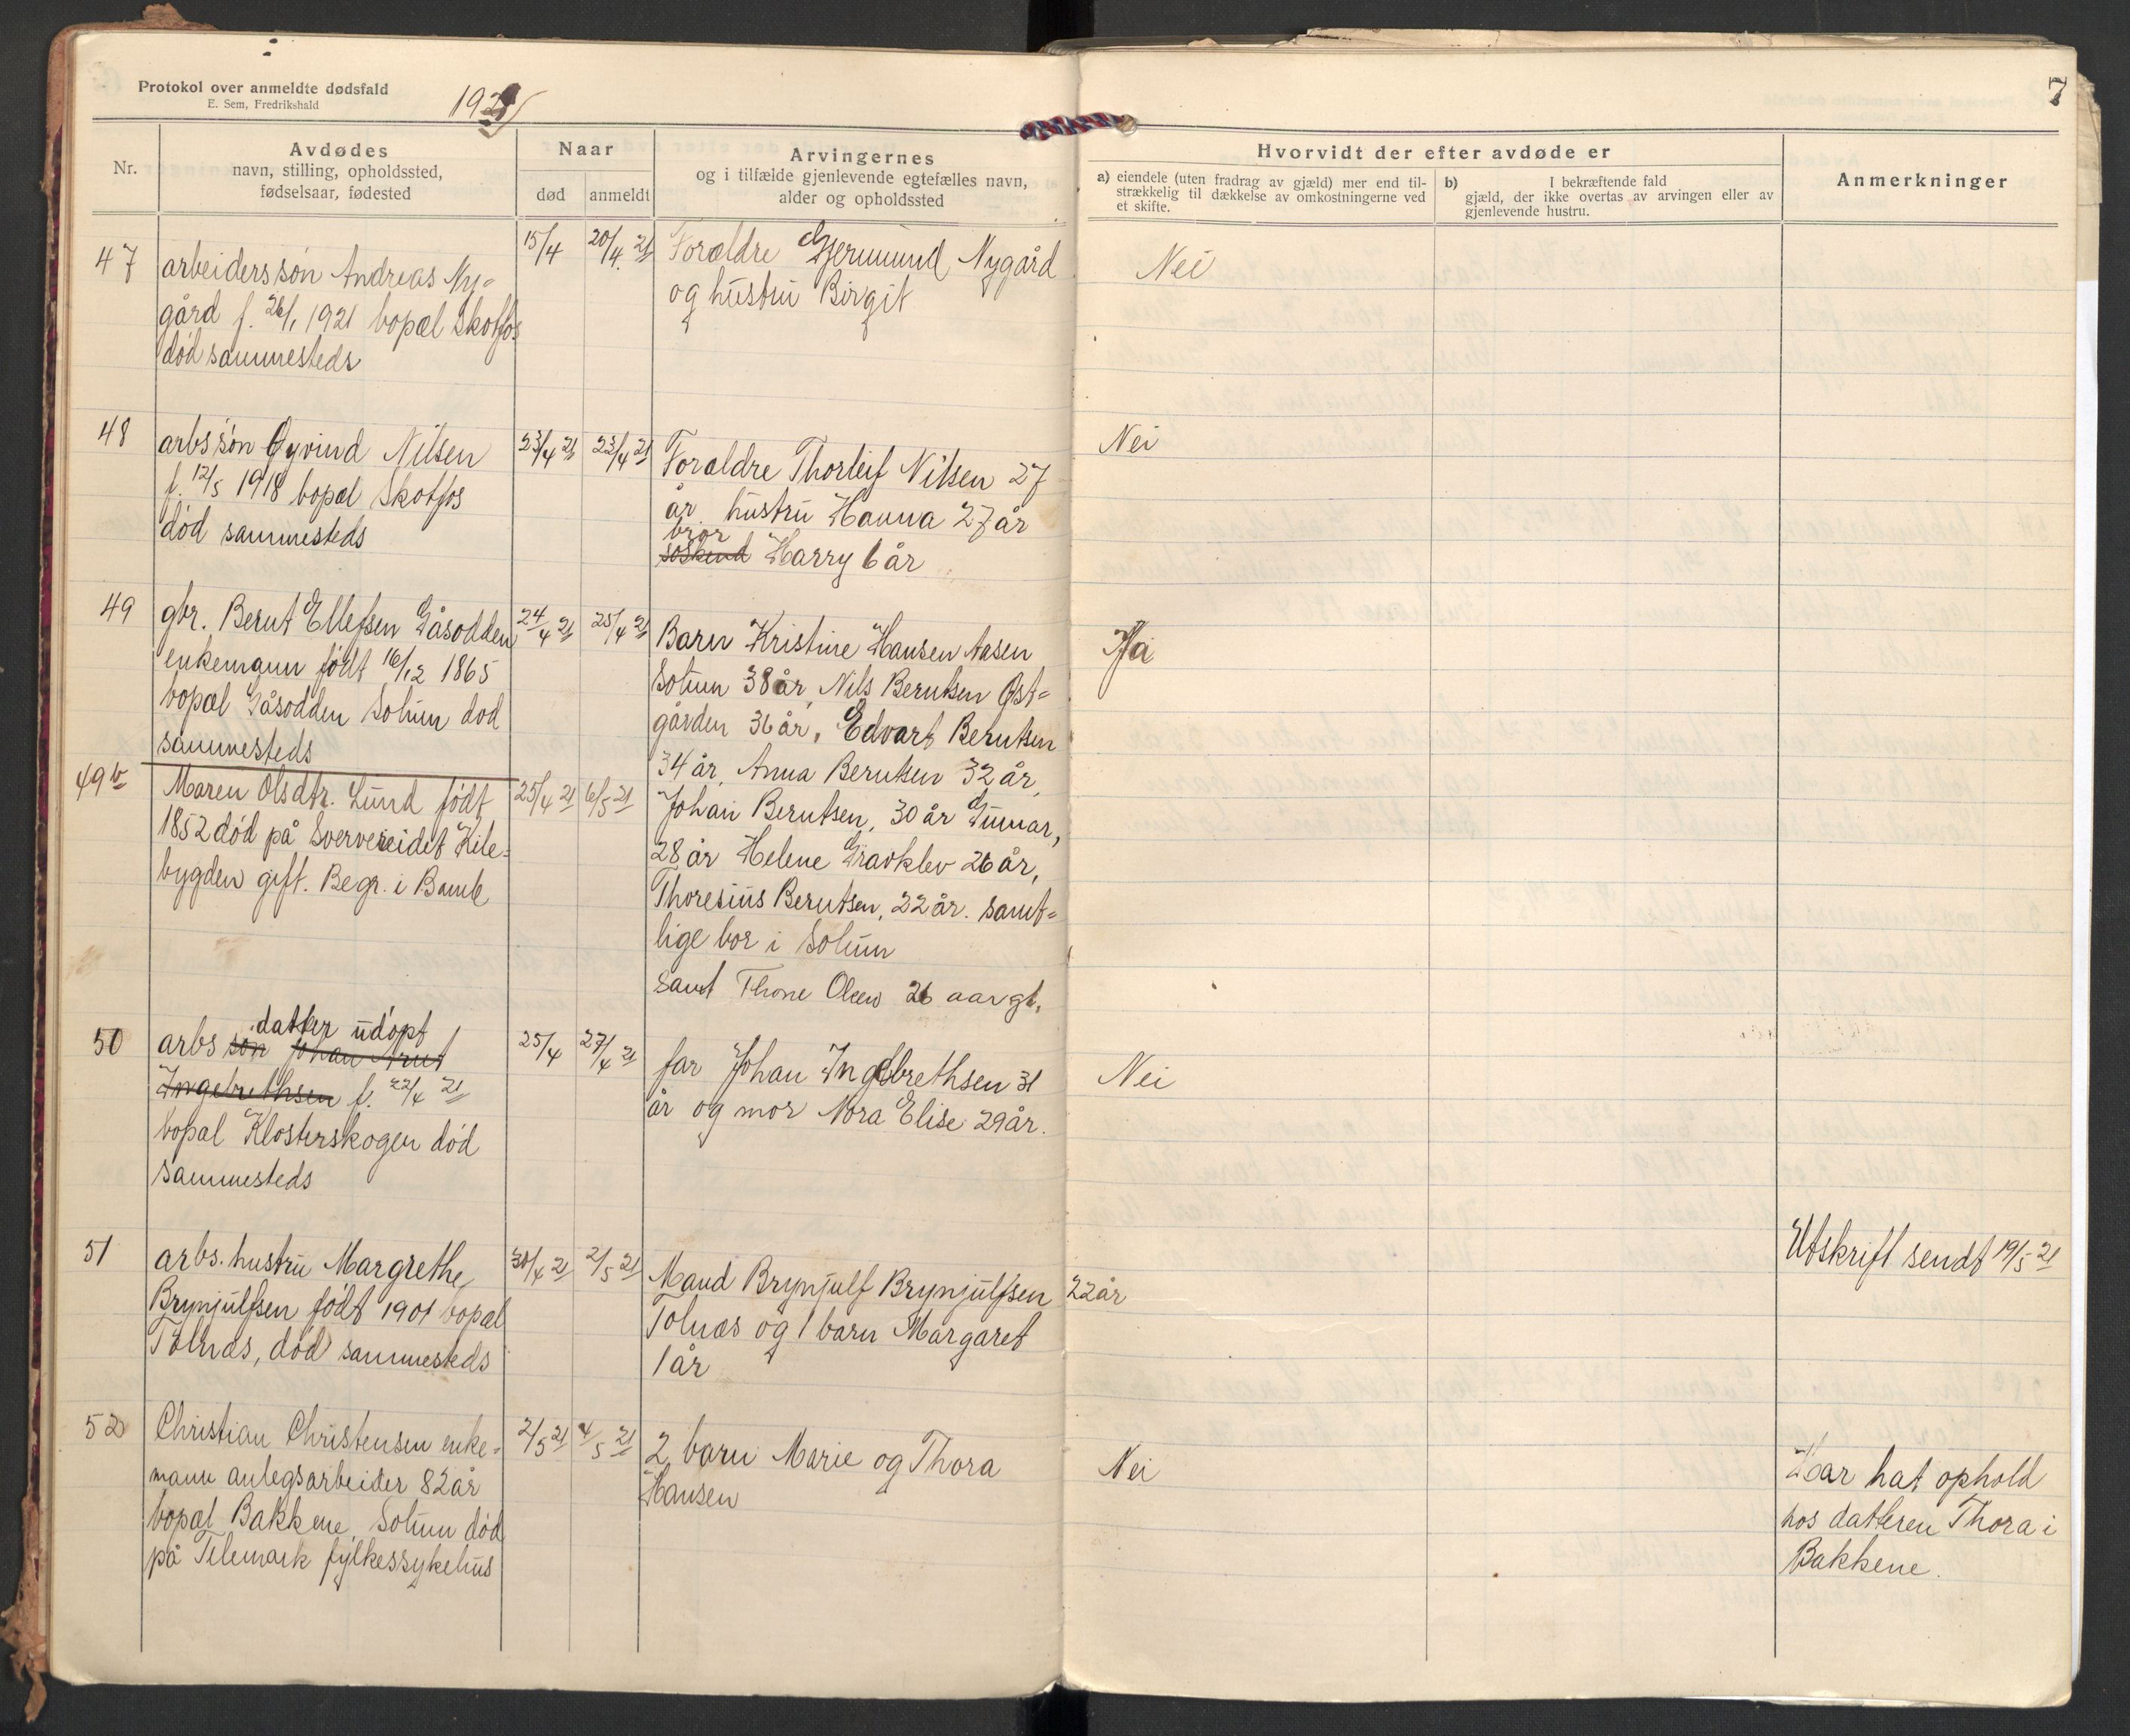 Protokol over anmeldte dødsfald
E. Sem, Fredrikshald
1921
7
Nr.
Avdødes
navn, stilling, opholdssted,
fødselsaar, fødested
Naar
død
anmeldt
Arvingernes
og i tilfælde gjenlevende egtefælles navn,
alder og opholdssted
Hvorvidt der efter avdøde er
a) eiendele (uten fradrag av gjæld) mer end til-
strækkelig til dækkelse av omkostningerne ved
et skifte.
b) I bekræftende fald
gjæld, der ikke overtas av arvingen eller av
gjenlevende hustru.
Anmerkninger
47
arbeiders søn Andreas Ny-
gård f. 26/1 1921 bopæl Skotfos
død sammesteds
15/4
20/4. 21
Forældre Gjermund Nygård
og hustru Birgit
Nei
48
arbs søn Øyvind Nilsen
f. 12/5 1918 bopæl Skotfos
død sammesteds
23/4 21
23/4 21
Forældre Thorleif Nilsen 27
år. hustru Hanna 27 år
bror
søskend Harry 6 år
Nei
49
gbr. Bernt Ellefsen Gåsodden
enkemann født 16/12 1865
bopæl Gåsodden Solum død
sammesteds
24/4 21
25/4 21
Barn Kristine Hansen Aasen
Solum 38 år, Nils Berntsen Øst-
gården 36 år, Edvart Berntsen
34 år, Anna Berntsen 32 år,
Johan Berntsen, 30 år Gunnar,
28 år Helene Gravklev 26 år,
Thoresius Berntsen, 22 år. samt-
lige bor i Solum
samt Thone Olsen 26 aar gl.
Ja
49b
Maren Olsdtr. Lund født
1852 død på Sververeidet Kile-
bygden gift. Begr. i Bamle
25/4 21
6/5 21
50
datter udøpt
arbs søn Johan Arut
Ingebrethsen f. 22/4 21
bopæl Klosterskogen død
sammesteds
25/4
27/4 21
far Johan Ingebrethsen 31
år og mor Nora Elise 29 år.
Nei
51
arbs. hustru Margrethe
Brynjulfsen født 1901 bopæl
Tolnæs, død sammesteds
30/4 21
2/5 21
Mand Brynjulf Brynjulfsen 22 år
Tolnæs og 1 barn Margaret
1 år
Utskrift sendt 19/5 21
52
Christian Christensen enke-
mann anlegsarbeider 82 år
bopæl Bakkene, Solum død
på Telemark fylkessykehus
2/5 21
4/5 21
2 barn Marie og Thora
Hansen
Nei
Har hat ophold
hos datteren Thora i
Bakkene.